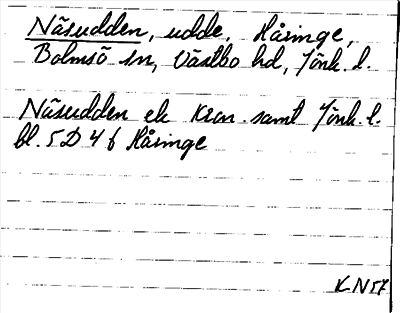 Näsudden, udde, Håringe,
Bolmsö sn, Västbo hd, Jönk. l.
Näsudden ek Kron. samt Jönk. l.
bl. 5D 4f Håringe
KN57